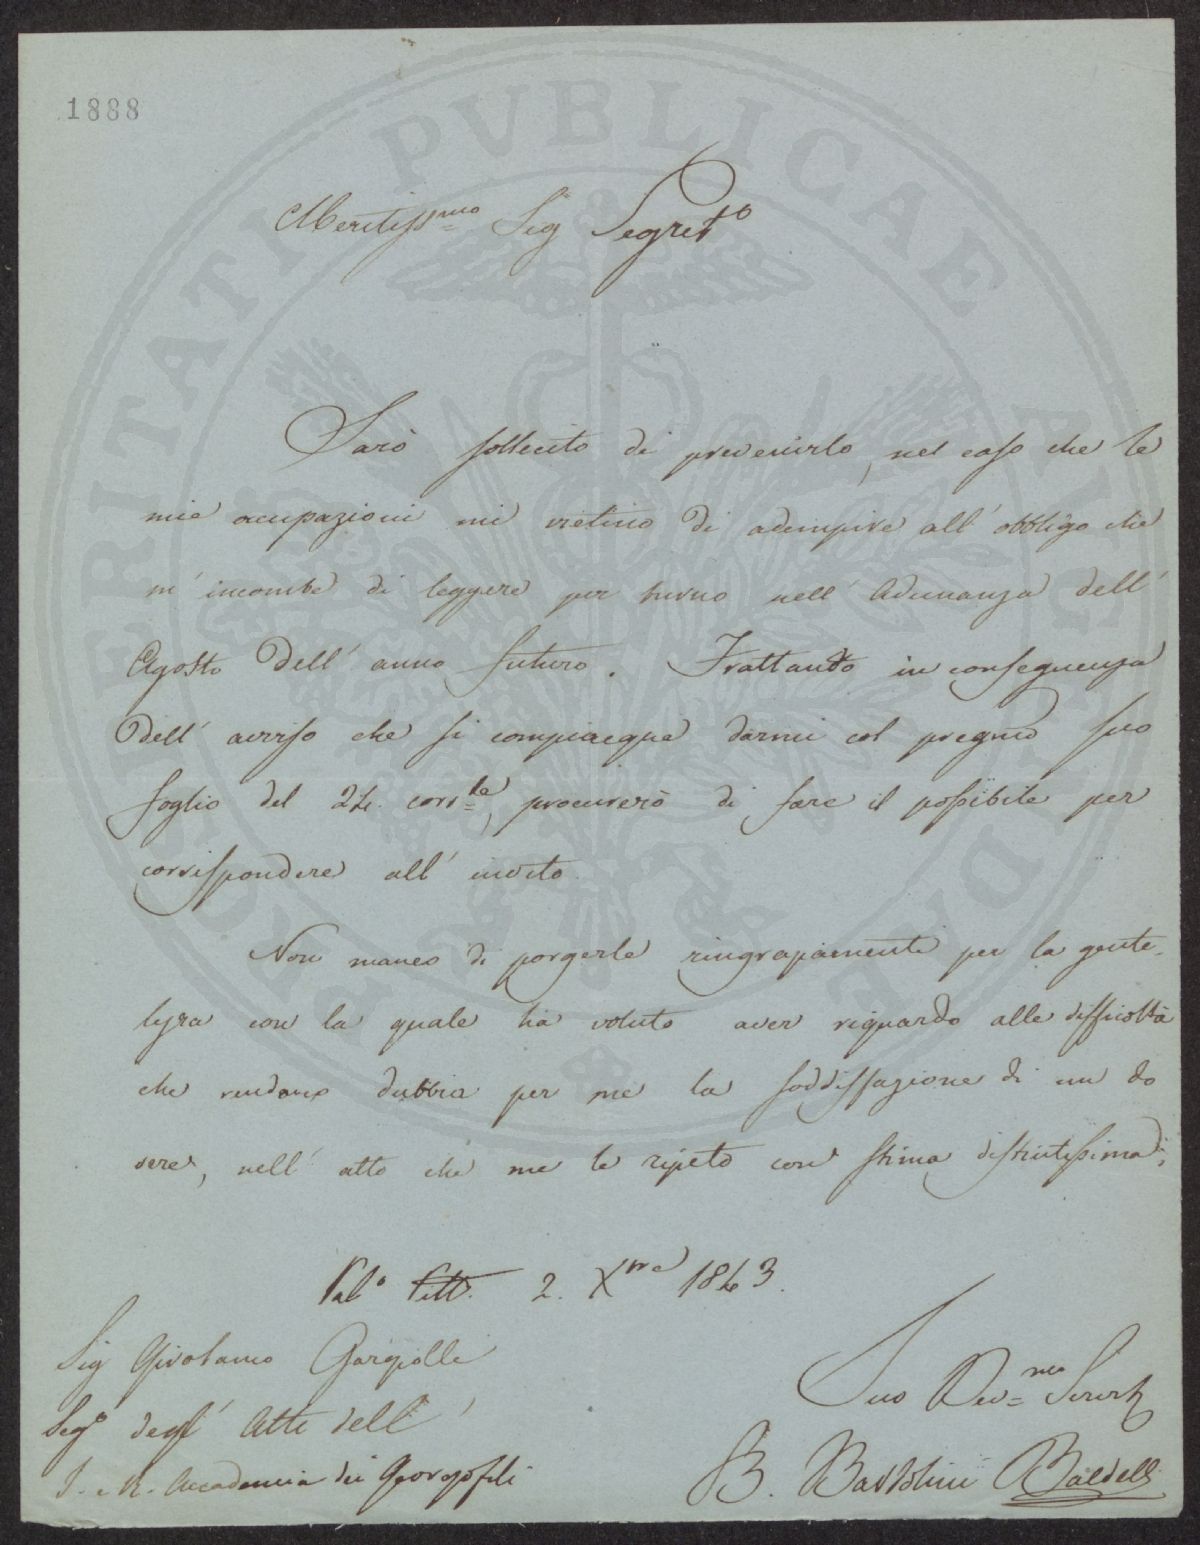 1888
Meritissmo Sig Segreto
Sarò sollecito di prevenirlo, nel caso che le
mie occupazioni mi vietino di adempire all' obbligo che
m' incombe di leggere per turno nell' Adunanza dell'
Agosto dell' anno futuro. Trattanto in conseguenza
dell' avviso che si compiacque darmi col pregmo suo
foglio del 24. corrte, procurerò di fare il possibile per
corrispondere all' invito.
Non manco di porgerle ringraziamenti per la genti-
lezza con la quale ha voluto aver riguardo alle difficoltà
che rendono dubbia per me la soddisfazione di un do
vere, nell' atto che me le ripeto con stima distintissima
2. Xbre 1843.
Sig Girolamo Gargiolli
Sego degl' Atti dell'
I. e R. Accademia dei Georgofili
Suo Devmo
B. Bartolini Baldelli
PROSPERITATI PVBLICAE AVGENDAE